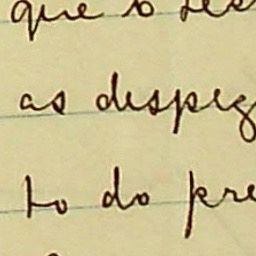 que o
as despeg
to do pre